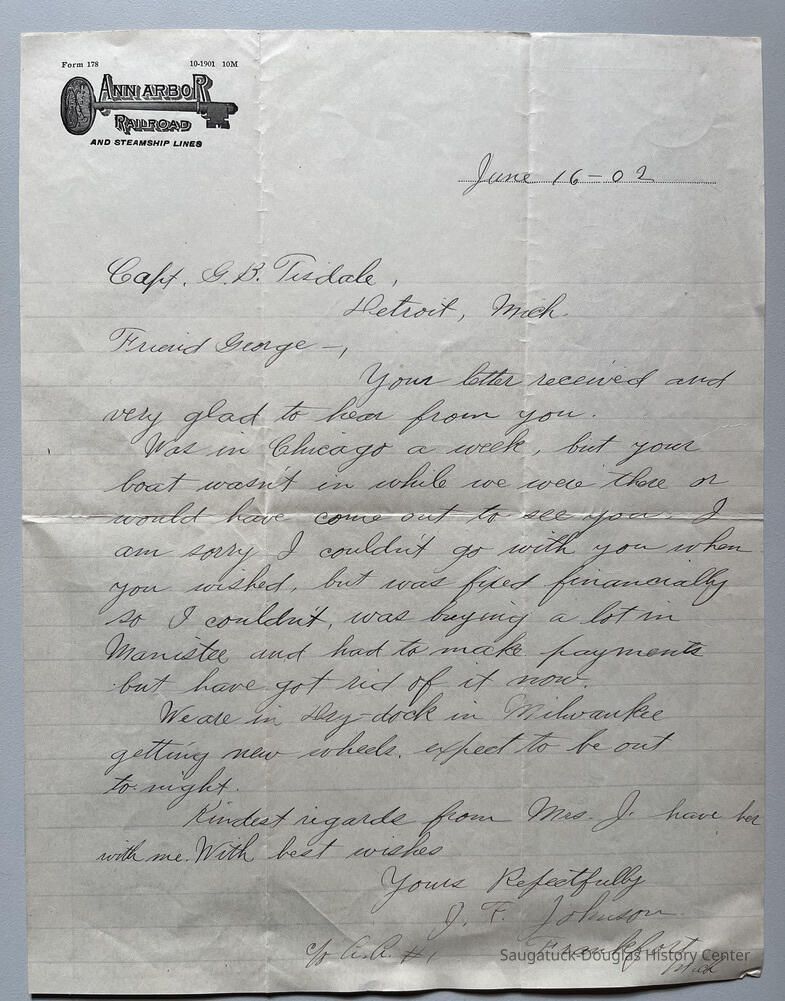 Form 178 10-1901 10M
ANN ARBOR
RAILROAD
AND STEAMSHIP LINES
June 16-02
Capt. G. B. Tisdale,
Detroit, Mich.
Friend George-,
Your letter received and
very glad to hear from you.
Was in Chicago a week, but your
boat wasn't in while we were there or
would have come out to see you. I
am sorry I couldn't go with you when
you wished, but was fixed financially
so I couldn't, was buying a lot in
Manistee and had to make payments
but have got rid of it now.
We are in Dry-dock in Milwaukie
getting new wheels. expect to be out
to-night.
Kindest regards from Mrs. J. have her
with me. With best wishes
Yours Repectfully
J. F. Johnson
c/o A.A. #1 Frankfort
Mich
Saugatuck-Douglas History Center